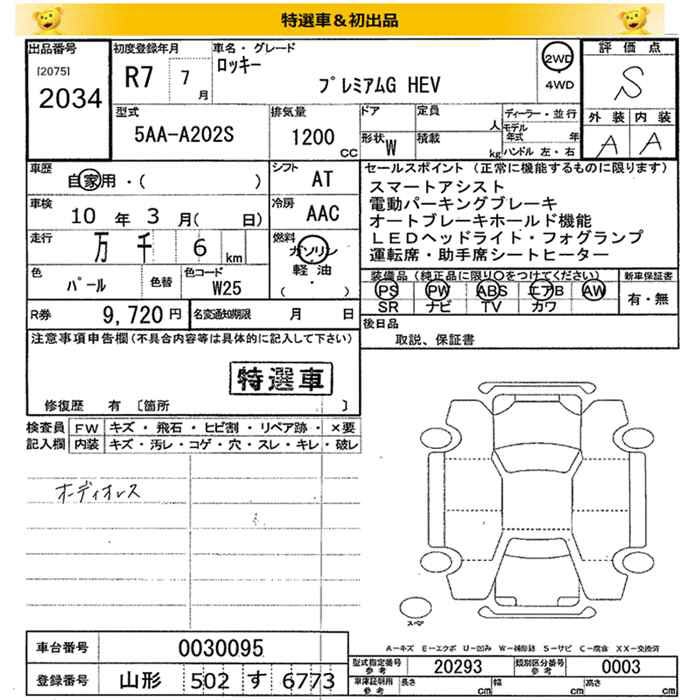 特選車＆初出品
出品番号
[2075]
2034
初度登録年月
R7 7月
車名・グレード
ロッキー
プレミアムG HEV
2WD
・
4WD
評価点
S
外装 内装
A A
型式
5AA-A202S
排気量
1200 CC
ドア
形状 W
定員 人
積載 kg
ディーラー・並行
モデル年式 年
ハンドル 左・右
車歴
自家用・( )
シフト
AT
車検
10年3月(日)
冷房
AAC
走行
万 千 6 km
燃料
ガソリン
軽油
・
( )
色
パール
色替
色コード
W25
R券 9,720円
名変通知期限 月 日
セールスポイント（正常に機能するものに限ります）
スマートアシスト
電動パーキングブレーキ
オートブレーキホールド機能
ＬＥＤヘッドライト・フォグランプ
運転席・助手席シートヒーター
装備品（純正品に限り○をつけてください）
PS PW ABS エアB AW
SR ナビ TV カワ
新車保証書
有・無
後日品
取説、保証書
注意事項申告欄（不具合内容等は具体的に記入して下さい）
特選車
修復歴 有 〔箇所 〕
検査員記入欄
FW キズ・飛石・ヒビ割・リペア跡・×要
内装 キズ・汚レ・コゲ・穴・スレ・キレ・破レ
オーディオレス
スペア
A－キズ E－エクボ U－凹み W－補修跡 S－サビ C－腐食 XX－交換済
車台番号 0030095
登録番号 山形 502 す 6773
型式指定番号 参考 20293
類別区分番号 参考 0003
車庫証明用 参考
長さ cm 幅 cm 高さ cm